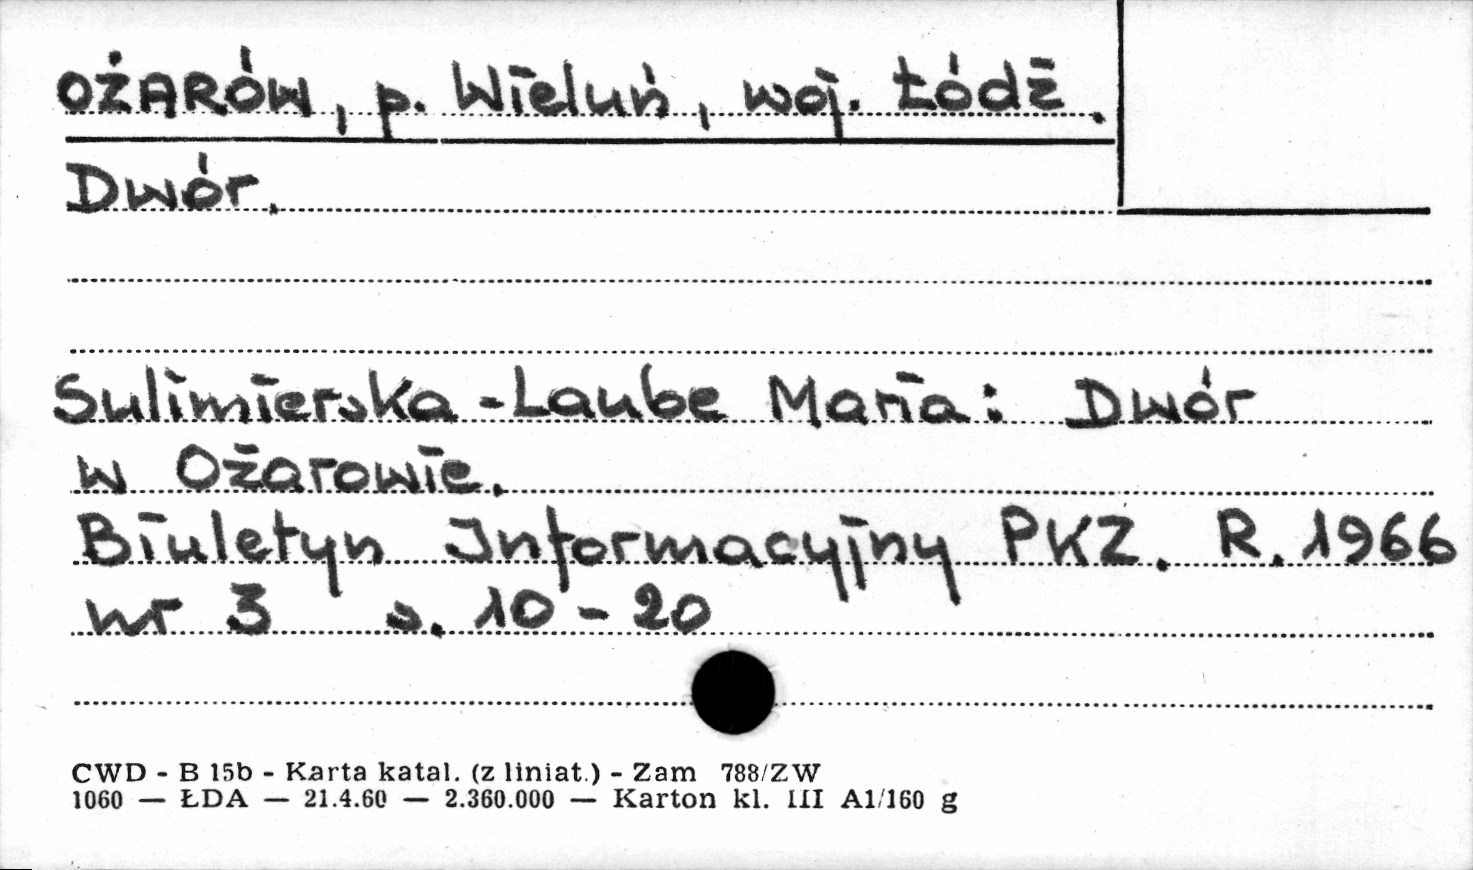 OŻARÓW, p. Wieluń, woj. Łódź.
Dwór.
Sulimierska-Laube Maria: Dwór
w Ożarowie.
Biuletyn Informacyjny PKZ. R. 1966
nr 3 s. 10-20
CWD - B 15b - Karta katal. (z liniat.) - Zam 788/ZW
1060 — ŁDA — 21.4.60 — 2.360.000 — Karton kl. III A1/160 g